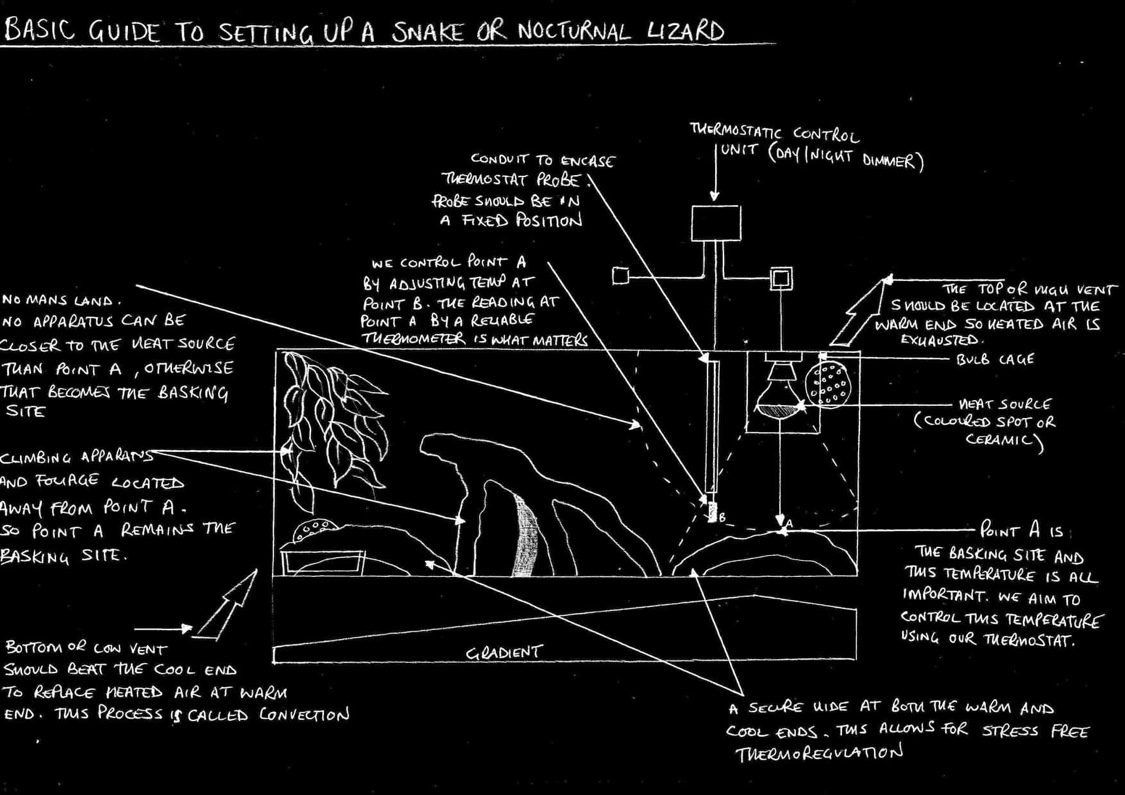 BASIC GUIDE TO SETTING UP A SNAKE OR NOCTURNAL LIZARD
THERMOSTATIC CONTROL
UNIT (DAY/NIGHT DIMMER)
CONDUIT TO ENCASE
THERMOSTAT PROBE.
PROBE SHOULD BE IN
A FIXED POSITION
WE CONTROL POINT A
BY ADJUSTING TEMP AT
POINT B. THE READING AT
POINT A BY A RELIABLE
THERMOMETER IS WHAT MATTERS
NO MANS LAND.
NO APPARATUS CAN BE
CLOSER TO THE HEAT SOURCE
THAN POINT A, OTHERWISE
THAT BECOMES THE BASKING
SITE
THE TOP OR HIGH VENT
SHOULD BE LOCATED AT THE
WARM END SO HEATED AIR IS
EXHAUSTED.
BULB CAGE
HEAT SOURCE
(COLOURED SPOT OR
CERAMIC)
CLIMBING APPARATUS
AND FOLIAGE LOCATED
AWAY FROM POINT A.
SO POINT A REMAINS THE
BASKING SITE.
B
A
POINT A IS
THE BASKING SITE AND
THIS TEMPERATURE IS ALL
IMPORTANT. WE AIM TO
CONTROL THIS TEMPERATURE
USING OUR THERMOSTAT.
GRADIENT
BOTTOM OR LOW VENT
SHOULD BE AT THE COOL END
TO REPLACE HEATED AIR AT WARM
END. THIS PROCESS IS CALLED CONVECTION
A SECURE HIDE AT BOTH THE WARM AND
COOL ENDS. THIS ALLOWS FOR STRESS FREE
THERMOREGULATION